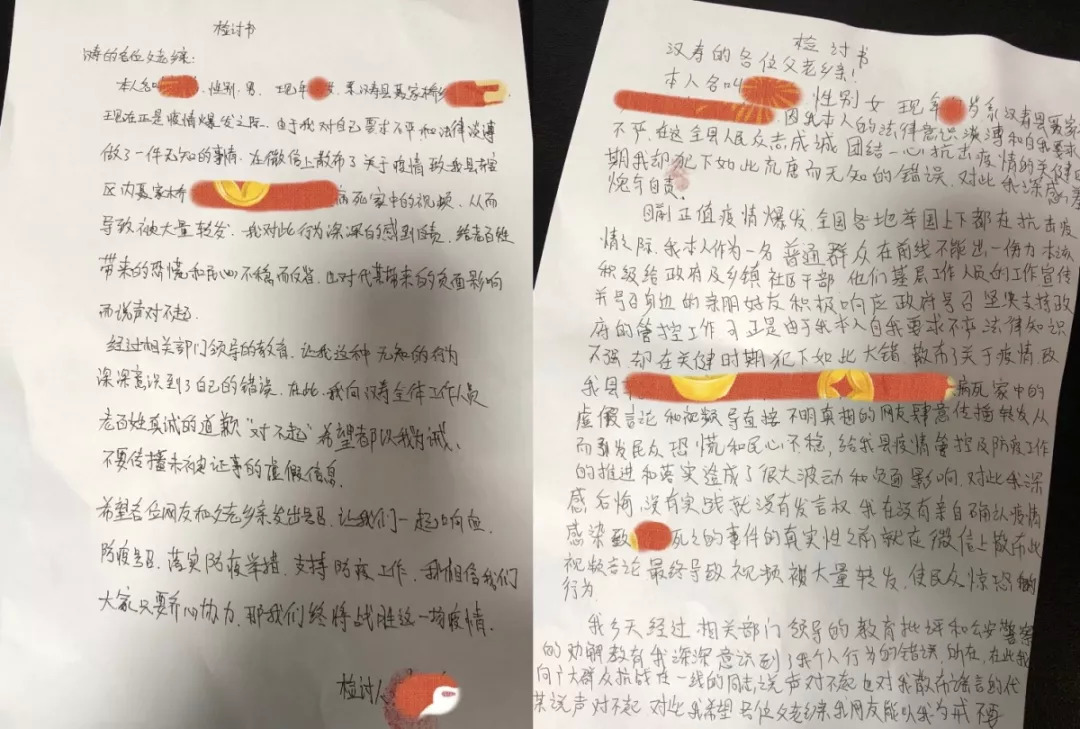 检讨书
汉寿的各位父老乡亲:
本人名叫 ,性别,男,现年 岁,系汉寿县聂家桥乡
现在正是疫情爆发之际,由于我对自己要求不严和法律淡薄
做了一件无知的事情,在微信上散布了关于疫情致我县
区内聂家桥 病死家中的视频,从而
导致被大量转发,我对此行为深深的感到自责,给老百姓
带来的恐慌和民心不稳而反省,也对代其带来的负面影响
而说声对不起.
经过相关部门领导的教育,让我这种无知的行为
深深意识到了自己的错误,在此,我向汉寿全体工作人员
老百姓真诚的道歉“对不起”希望都以我为诫、
不要传播未被证事的虚假信息.
希望各位网友和父老乡亲发出号召,让我们一起响应
防疫号召,落实防疫举措,支持防疫工作,我相信我们
大家只要齐心协力,那我们终将战胜这一场疫情.
检讨人
检讨书
汉寿的各位父老乡亲!
本人名叫 性别 女 现年 岁系汉寿县聂家
因我本人的法律意识淡薄和自我要求
不严,在这全县人民众志成诚 团结一心抗击疫情的关健
期我却犯下如此荒唐而无知的错误,对此我深感羞
愧与自责
目前正值疫情爆发,全国各地举国上下都在抗击疫
情之际,我本人作为一名普通群众在前线不能出一份力本该
积级给政府及乡镇社区干部 他们基层工作人员的工作宣传
并号召身边的亲朋好友积极响应政府号召坚决支持政
府的管控工作可正是由于我本人自我要求不严法律知识
不强,却在关健时期犯下如此大错 散布了关于疫情致
我县 病死家中的
虚假言论和视频导直接不明真想的网友肆意传播转发从
而引发民众恐慌和民心不稳,给我县疫情管控及防疫工作
的推进和落实造成了很大波动和负面影响,对此我深
感后悔,没有实践就没有发言权,我在没有亲自确认疫情
感染致 死亡的事件的真实性之前就在微信上散布此
视频言论最终导致视频被大量转发,使民众惊恐的
行为.
我今天经过相关部门领导的教育批评和公安警察
的劝解教育我深深意识到了我个人行为的错误,所在,在此我
向广大群众抗战在一线的同志,说声对不起也对我散布谣言的代
某说声对不起 对此我希望各位父老乡亲我网友能以我为戒不要